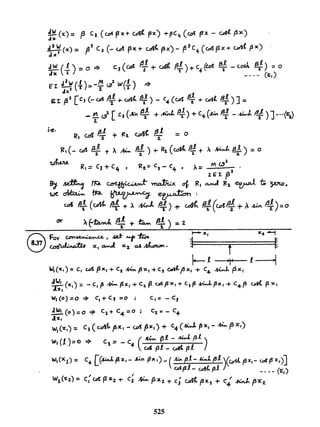 dW/dx (x) = β C₃ (cos βx + cosh βx) + β C₄ (cos βx − cosh βx)
d³W/dx³ (x) = β³ C₃ (− cos βx + cosh βx) − β³ C₄ (cos βx + cosh βx)
dW/dx (l/2) = 0 ⇒ C₃ (cos βl/2 + cosh βl/2) + C₄ (cos βl/2 − cosh βl/2) = 0
---- (E₁)
EI d³W/dx³ (l/2) = − M/2 ω² W(l/2) ⇒
EI β³ [C₃ (− cos βl/2 + cosh βl/2) − C₄ (cos βl/2 + cosh βl/2)] =
− M/2 ω² [C₃ (sin βl/2 + sinh βl/2) + C₄ (sin βl/2 − sinh βl/2)] ---(E₂)
i.e. R₁ cos βl/2 + R₂ cosh βl/2 = 0
R₁ (− cos βl/2 + λ sin βl/2) + R₂ (cosh βl/2 + λ sinh βl/2) = 0
where R₁ = C₃ + C₄ , R₂ = C₃ − C₄ , λ = M ω² / 2EI β³ .
By setting the coefficient matrix of R₁ and R₂ equal to zero,
we obtain the frequency equation:
cos βl/2 (cosh βl/2 + λ sinh βl/2) + cosh βl/2 (cos βl/2 + λ sin βl/2) = 0
or λ (tanh βl/2 + tan βl/2) = 2
8.37 For convenience, set up the
coordinates x₁ and x₂ as shown.
x₁ x₂
l l
W₁(x₁) = C₁ cos βx₁ + C₂ sin βx₁ + C₃ cosh βx₁ + C₄ sinh βx₁
dW₁/dx₁ (x₁) = − C₁ β sin βx₁ + C₂ β cos βx₁ + C₃ β sinh βx₁ + C₄ β cosh βx₁
W₁(0) = 0 ⇒ C₁ + C₃ = 0 ; C₁ = − C₃
dW₁/dx₁ (0) = 0 ⇒ C₂ + C₄ = 0 ; C₂ = − C₄
W₁(x₁) = C₃ (cosh βx₁ − cos βx₁) + C₄ (sinh βx₁ − sin βx₁)
W₁(l) = 0 ⇒ C₃ = − C₄ (sin βl − sinh βl / cos βl − cosh βl)
W₁(x₁) = C₄ [(sinh βx₁ − sin βx₁) − (sin βl − sinh βl / cos βl − cosh βl)(cosh βx₁ − cos βx₁)]
---- (E₁)
W₂(x₂) = C₁′ cos βx₂ + C₂′ sin βx₂ + C₃′ cosh βx₂ + C₄′ sinh βx₂
525